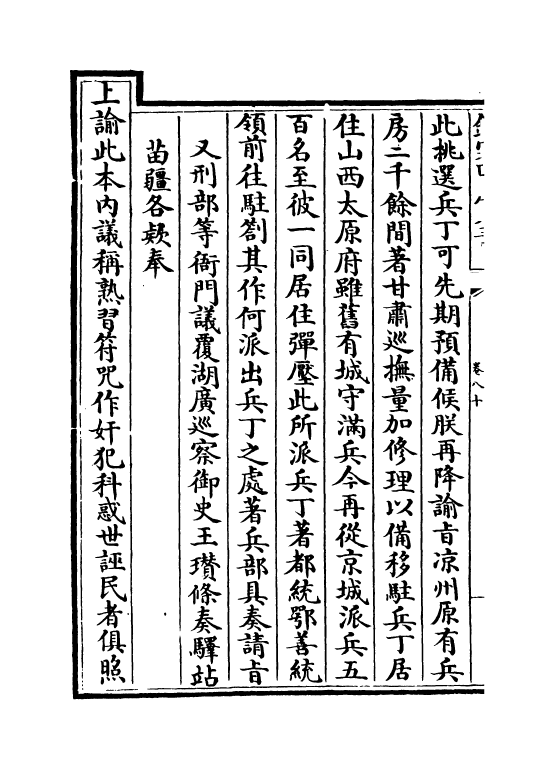 此挑選兵丁可先期預備候朕再降諭㫖凉州原有兵
房二千餘間著甘肅廵撫量加修理以備移駐兵丁居
住山西太原府雖舊有城守滿兵今再從京城派兵五
百名至彼一同居住彈壓此所派兵丁著都統鄂善統
領前往駐劄其作何派出兵丁之處著兵部具奏請㫖
又刑部等衙門議覆湖廣廵察御史王瓚條奏驛站
苗疆各欵奉
上諭此本內議稱熟習符咒作奸犯科惑世誣民者俱照
卷八十